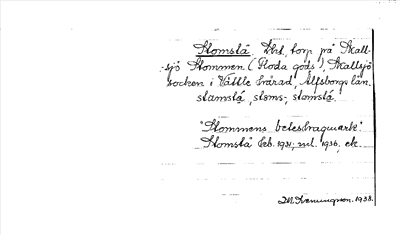 Stomstå Öbl. torp på Skall-
sjö Stommen (Floda gods), Skallsjö
socken i Vättle härad, Älfsborgs län.
stamstá, stoms-, stomstá.
"Stommens betesbragmark".
Stomstå Feb. 1931, ml. 1936, etc.
1938.